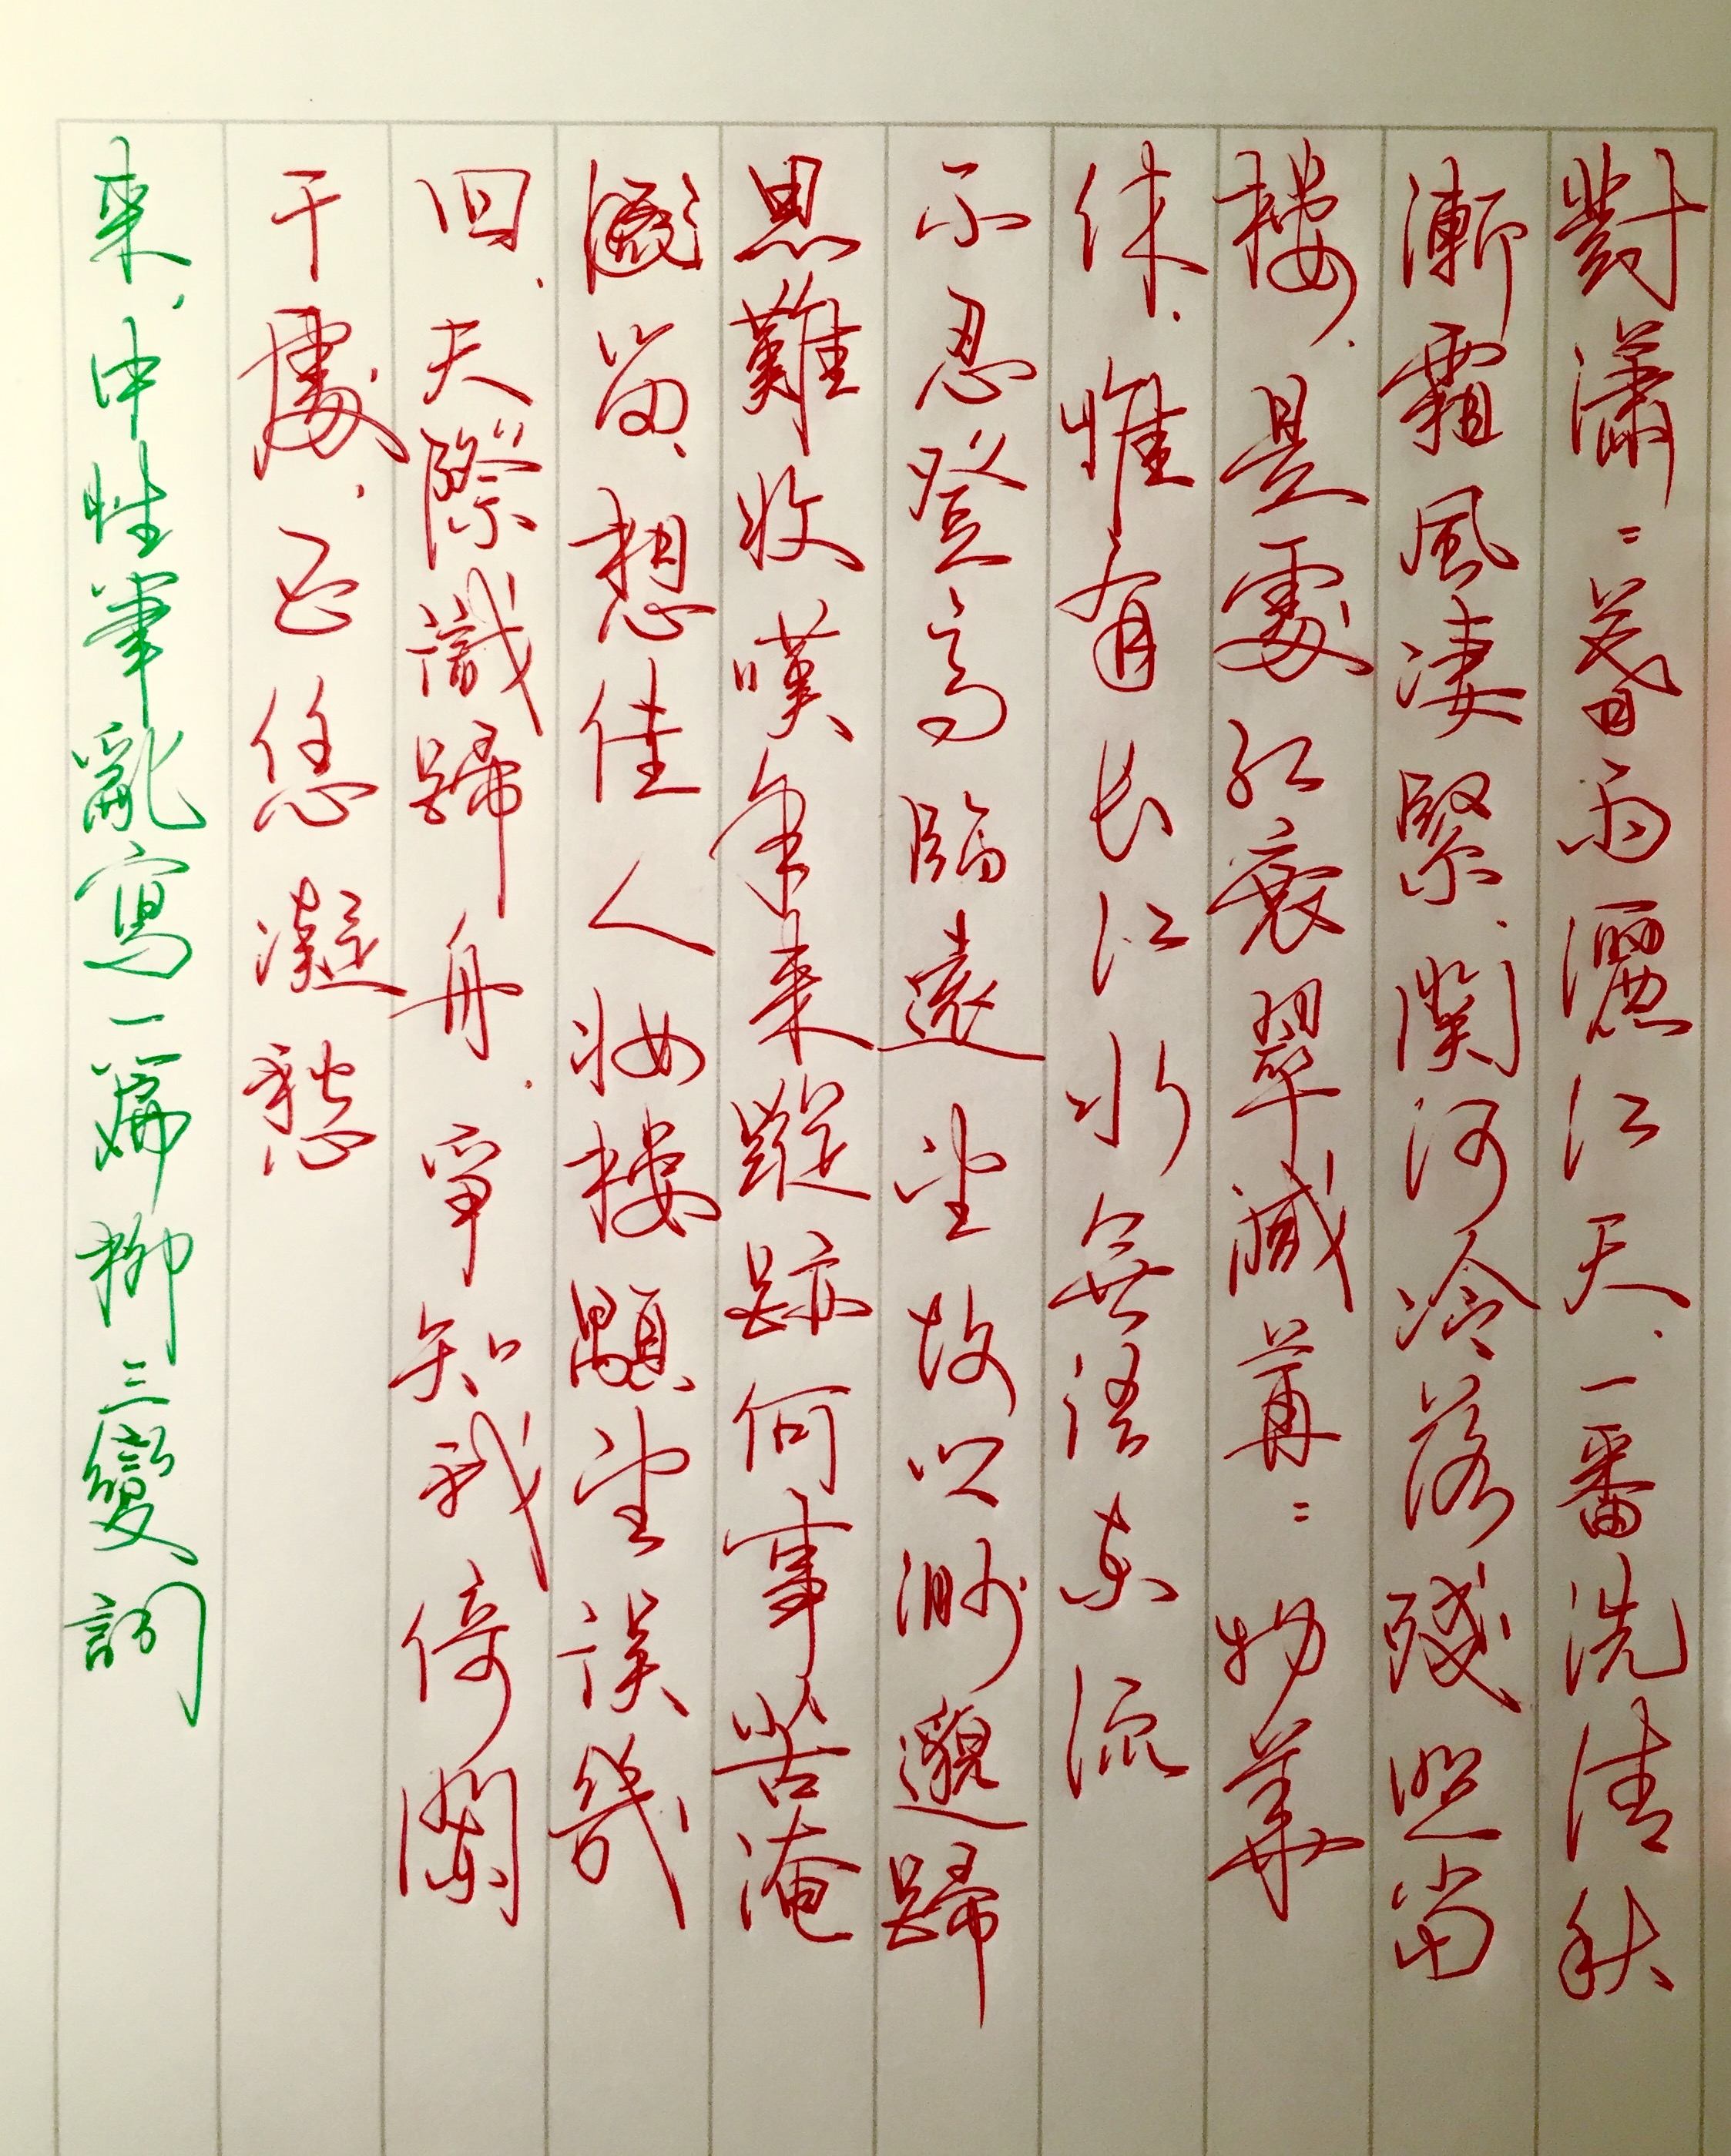 對瀟〻暮雨灑江天、一番洗清秋
漸霜風凄緊、關河冷落殘照當
樓、是處紅衰翠減苒〻物華
休、惟有長江水無語東流
不忍登高臨遠望故鄉渺邈歸
思難收嘆年來蹤跡何事苦淹
留、想佳人妝樓顒望誤幾
回、天際識歸舟、爭知我倚闌
干處、正恁凝愁
來、中性筆亂寫一篇柳三變詞